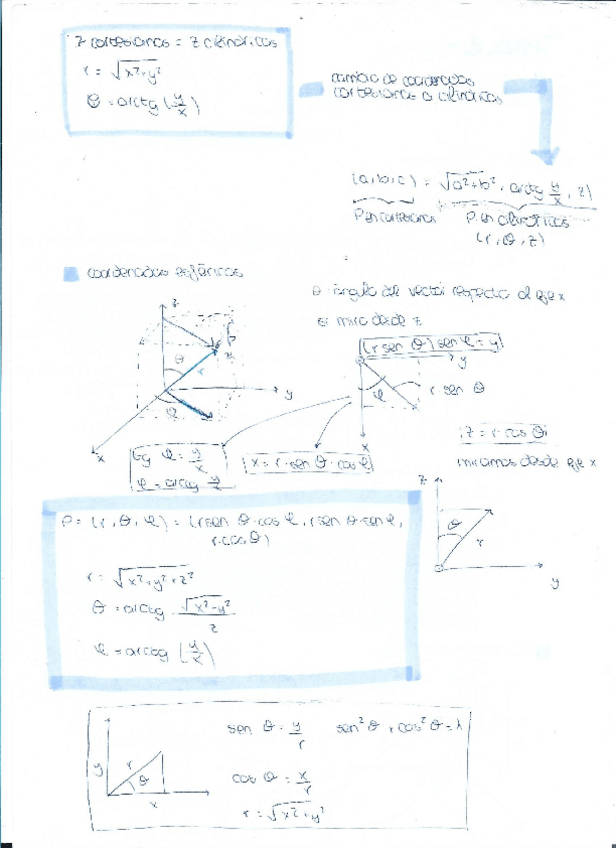 z cartesianas = z cilíndricas
r = √x²+y²
θ = arctg (y/x)
cambio de coordenadas
cartesianas a cilíndricas
(a, b, c) = √a²+b², arctg y/x, z)
P en cartesianas P. en cilíndricas
(r, θ, z)
coordenadas esféricas
θ ángulo del vector respecto al eje x
si miro desde z
z
θ
r
φ
y
x
(r sen θ) sen φ = y
y
φ
r sen θ
x
tg φ = y/x
φ = arctg y/x
x = r·sen θ·cos φ
z = r·cos θ
miramos desde eje x
z
θ
r
y
P = (r, θ, φ) = (r sen θ·cos φ, r sen θ·sen φ,
r·cos θ)
r = √x²+y²+z²
θ = arctg √x²-y²/z
φ = arctg (y/x)
sen θ = y/r sen²θ + cos²θ = 1
y
r
θ
x
cos θ = x/r
r = √x²+y²